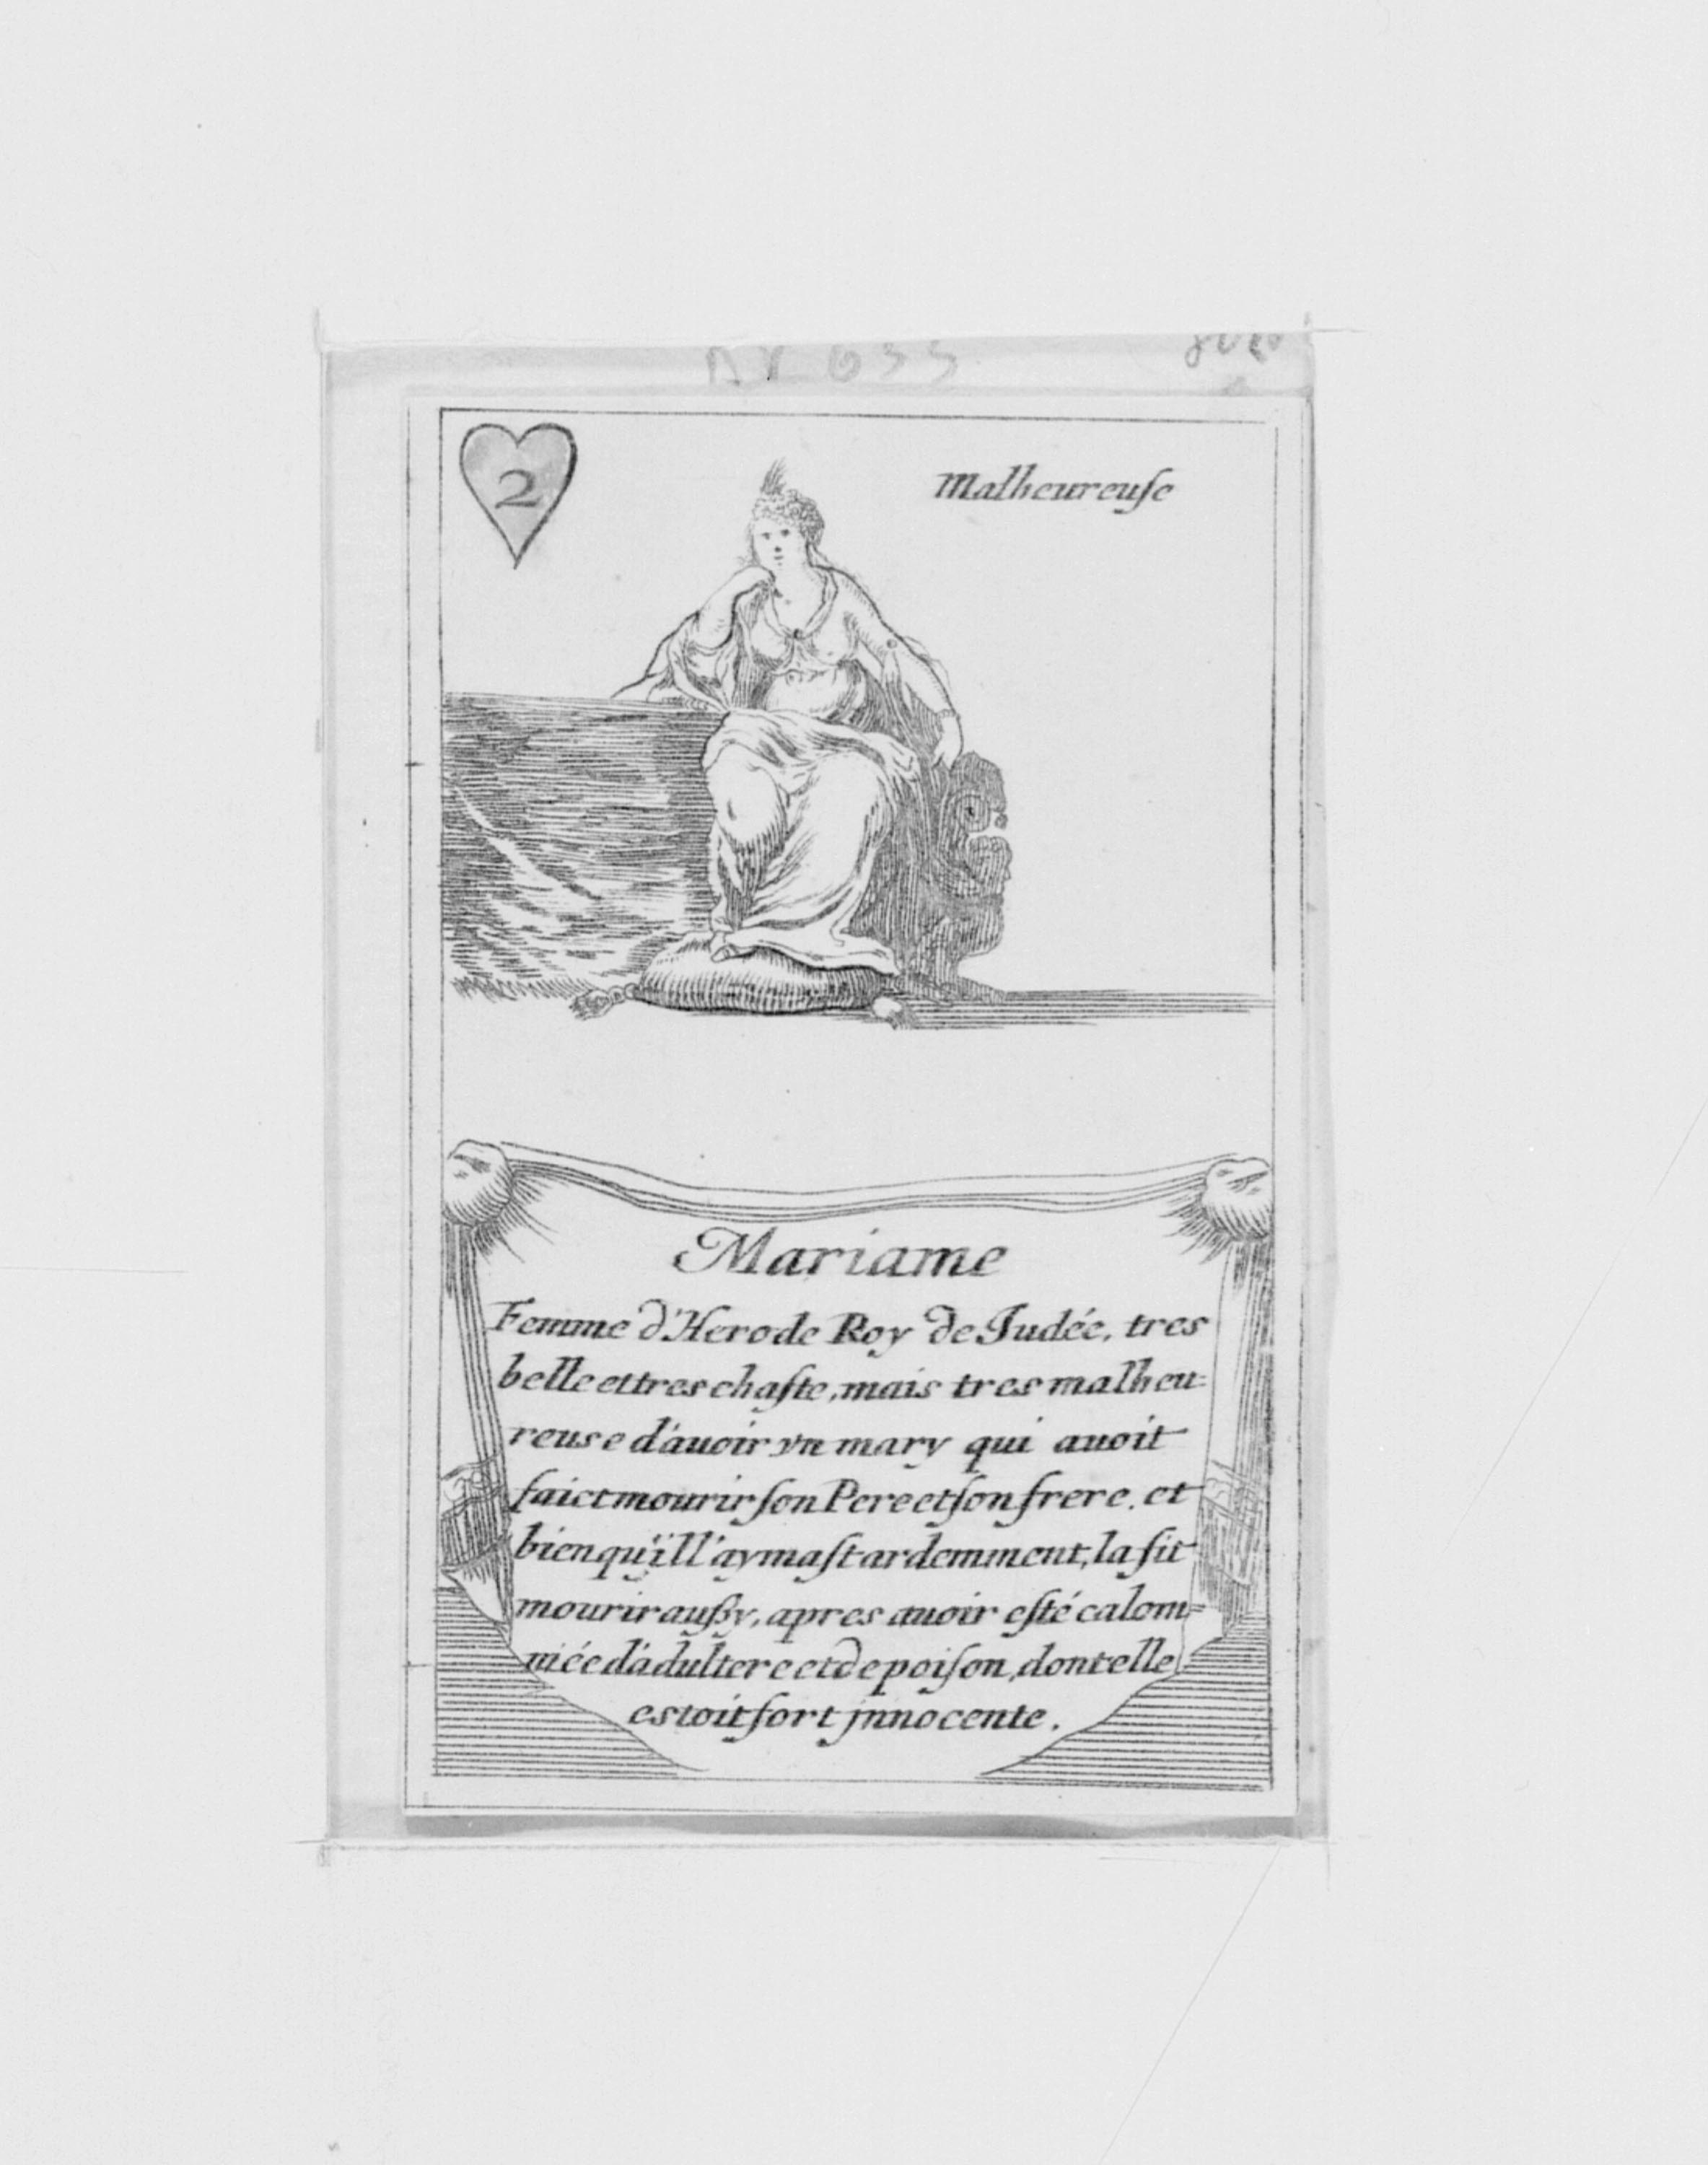 2
Malheureuſe
Mariame
Femme d'Herode Roy de Judée, tres
belle et tres chaſte, mais tres malheu=
reuse d'auoir vn mary qui auoit
faict mourir ſon Pere et ſon frere, et
bien qu'il l'aymaſt ardemment, la fit
mourir auſſy, apres auoir eſté calom=
niée d'adultere et de poiſon, dont elle
estoit fort jnnocente.